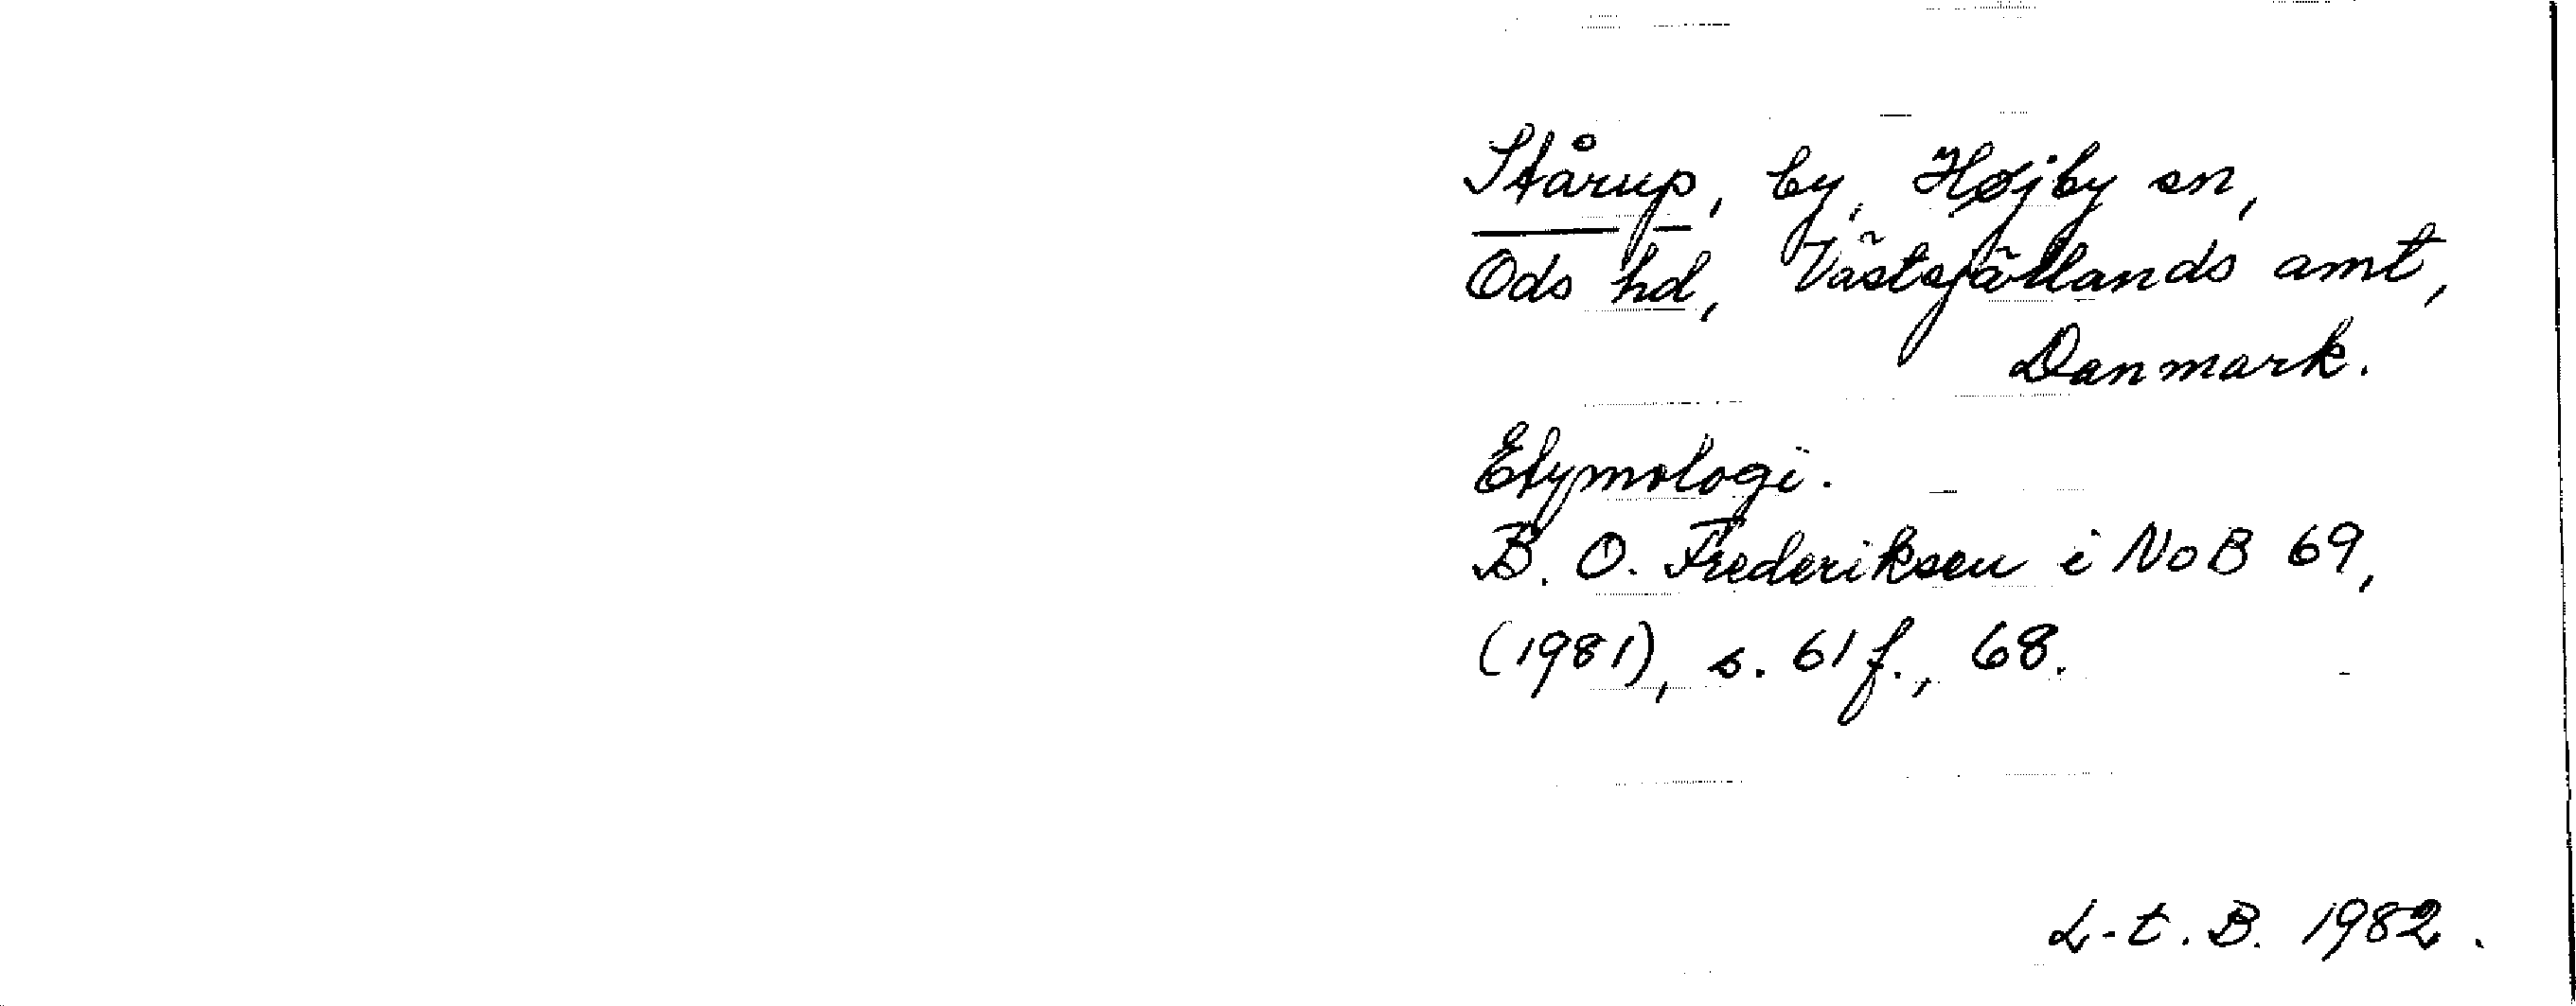 Stårup, by, Højby sn,
Ods hd, Västsjällands amt,
Danmark.
Etymologi.
B. O. Frederiksen i NoB 69,
(1981), s. 61 f., 68.
L-t. B. 1982.